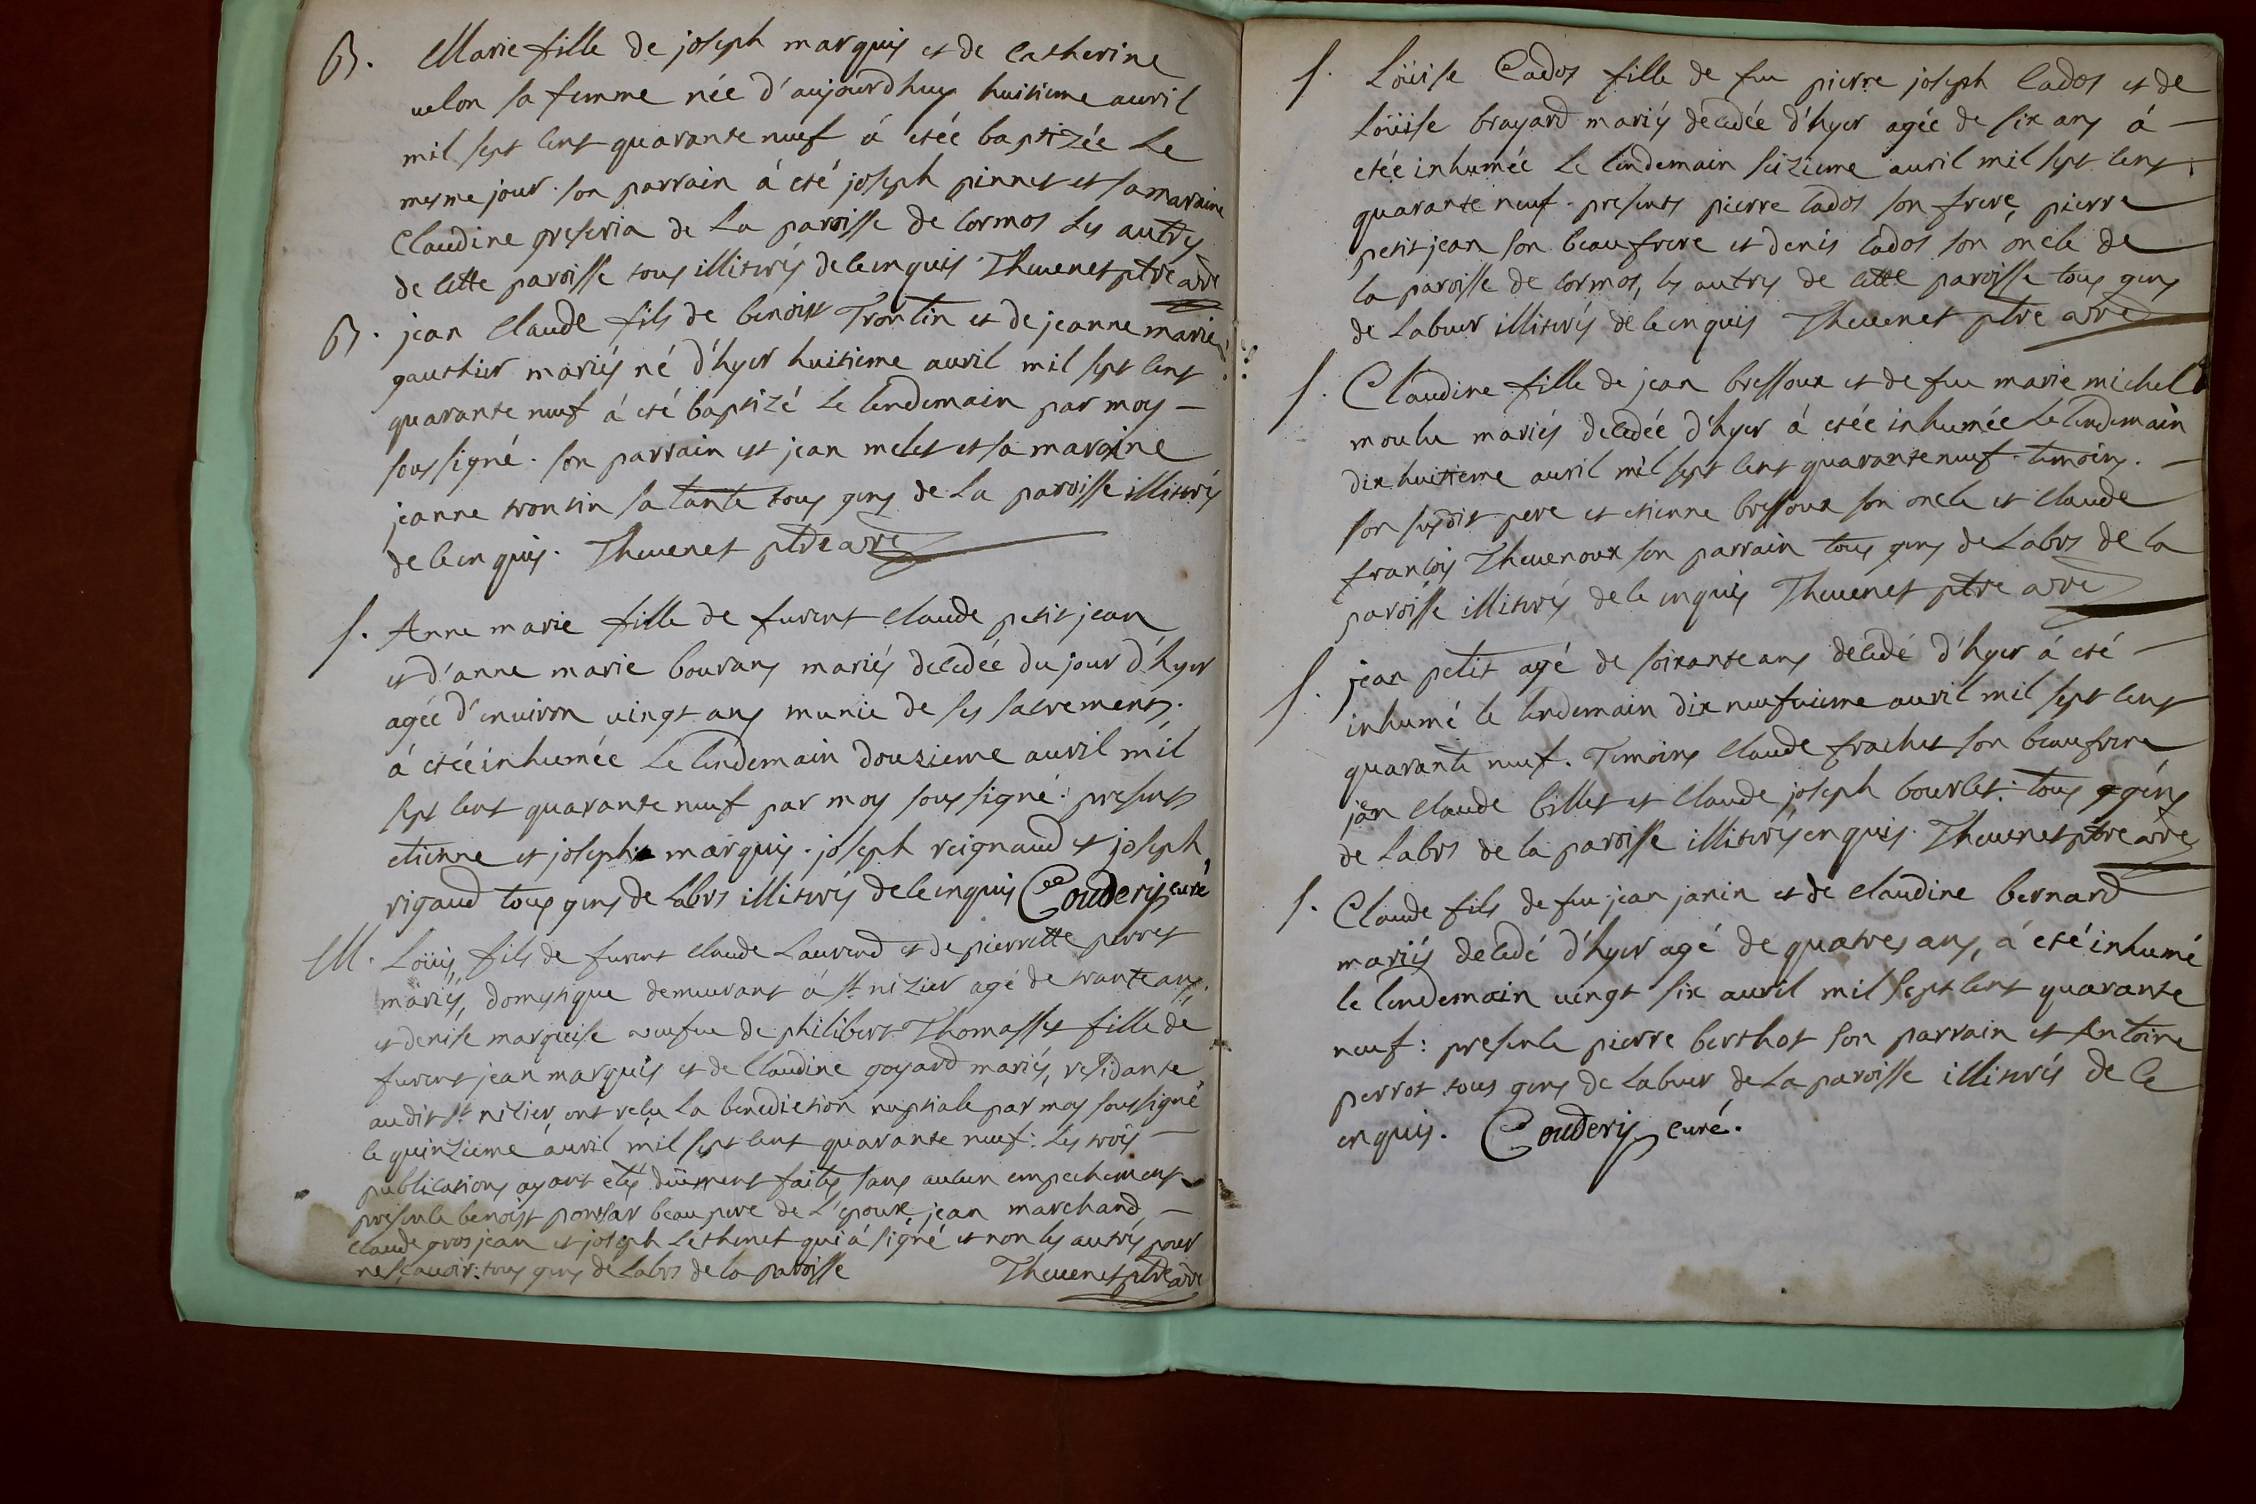 B. Marie fille de joseph marquis et de catherine
uelon sa femme née d'aujourdhuy huitieme auril
mil sept cent quarante neuf á etée baptizée Le
mesme jour. son parrain á eté joseph pinnet et sa maraine
Claudine greseria de La paroisse de Cormos Les autres
de cette paroisse tous illiterés de ce enquis. Theuenet ptre arde
B. jean Claude fils de benoist Trontin et de jeanne marie
gauthier mariés né d'hyer huitieme auril mil sept cent
quarante neuf á eté baptizé Le Lendemain par moy —
soussigné. son parrain est jean melet et sa maraine
jeanne trontin sa tante tous gens de La paroisse illiterés
de ce enquis. Theuenet ptre arde
S. Anne marie fille de furent Claude petit jean
et d'anne marie bourans mariés decedée du jour d'hyer
agée d'enuiron uingt ans munie de ses sacrements.
á etée inhumée Le Lendemain douzieme auril mil
sept cent quarante neuf par moy soussigné: presents
etienne et joseph marquis. joseph reignaud et joseph
rigaud tous gens de Labrs illiterés de ce enquis Couderis, curé
M. Loüis, fils de furent claude Laurend et de pierrette perret
mariés, domestique demeurant á st. nizier agé de trante ans.
et denise marquise ueufue de philibert Thomasset fille de
furent jean marquis et de Claudine goyard mariés, residante
audit st. nizier, ont reçu La benediction nuptiale par moy soussigné
le quinzieme auril mil sept cent quarante neuf: Les trois —
publications ayant etés düement faites sans aucun empechement
presents benoist ponsar beau pere de L'epoux, jean marchand, —
claude gros jean et joseph Lethenet qui á signé et non les autres pour
ne sçauoir: tous gens de Labrs de la paroisse Theuenet ptre arde
S. Loüise Cados fille de feu pierre joseph Cados et de
Loüise brayard mariés decedée d'hyer agée de six ans á —
etée inhumée Le lendemain seizieme auril mil sept cent
quarante neuf. presents pierre Cados son frere, pierre
petit jean son beaufrere et denis Cados son oncle de
la paroisse de Cormos, les autres de cette paroisse tous gens
de Labeur illiterés de ce enquis Theuenet ptre arde
S. Claudine fille de jean bressoux et de feu marie michel
moulu mariés decedée d'hyer á etée inhumée Le lendemain
dix huitieme auril mil sept cent quarante neuf. temoins. —
son susdit pere et etienne bressoux son oncle et Claude
françois Theuenoux son parrain tous gens de Labrs de la
paroisse illiterés de ce enquis Theuenet ptre arde
S. jean petit agé de soixante ans decedé d'hyer á eté —
inhumé le lendemain dix neufuieme auril mil sept cent
quarante neuf. Temoins Claude frachet son beaufrere
jean Claude billet et Claude joseph bourlet: tous gens
de Labrs de la paroisse illiterés enquis. Theuenet ptre arde
S. Claude fils de feu jean janin et de claudine bernard
mariés decedé d'hyer agé de quatres ans, á eté inhumé
le lendemain uingt six auril mil sept cent quarante
neuf: presents pierre berthot son parrain et Antoine
perrot tous gens de Labeur de La paroisse illiterés de ce
enquis. Couderis, curé.